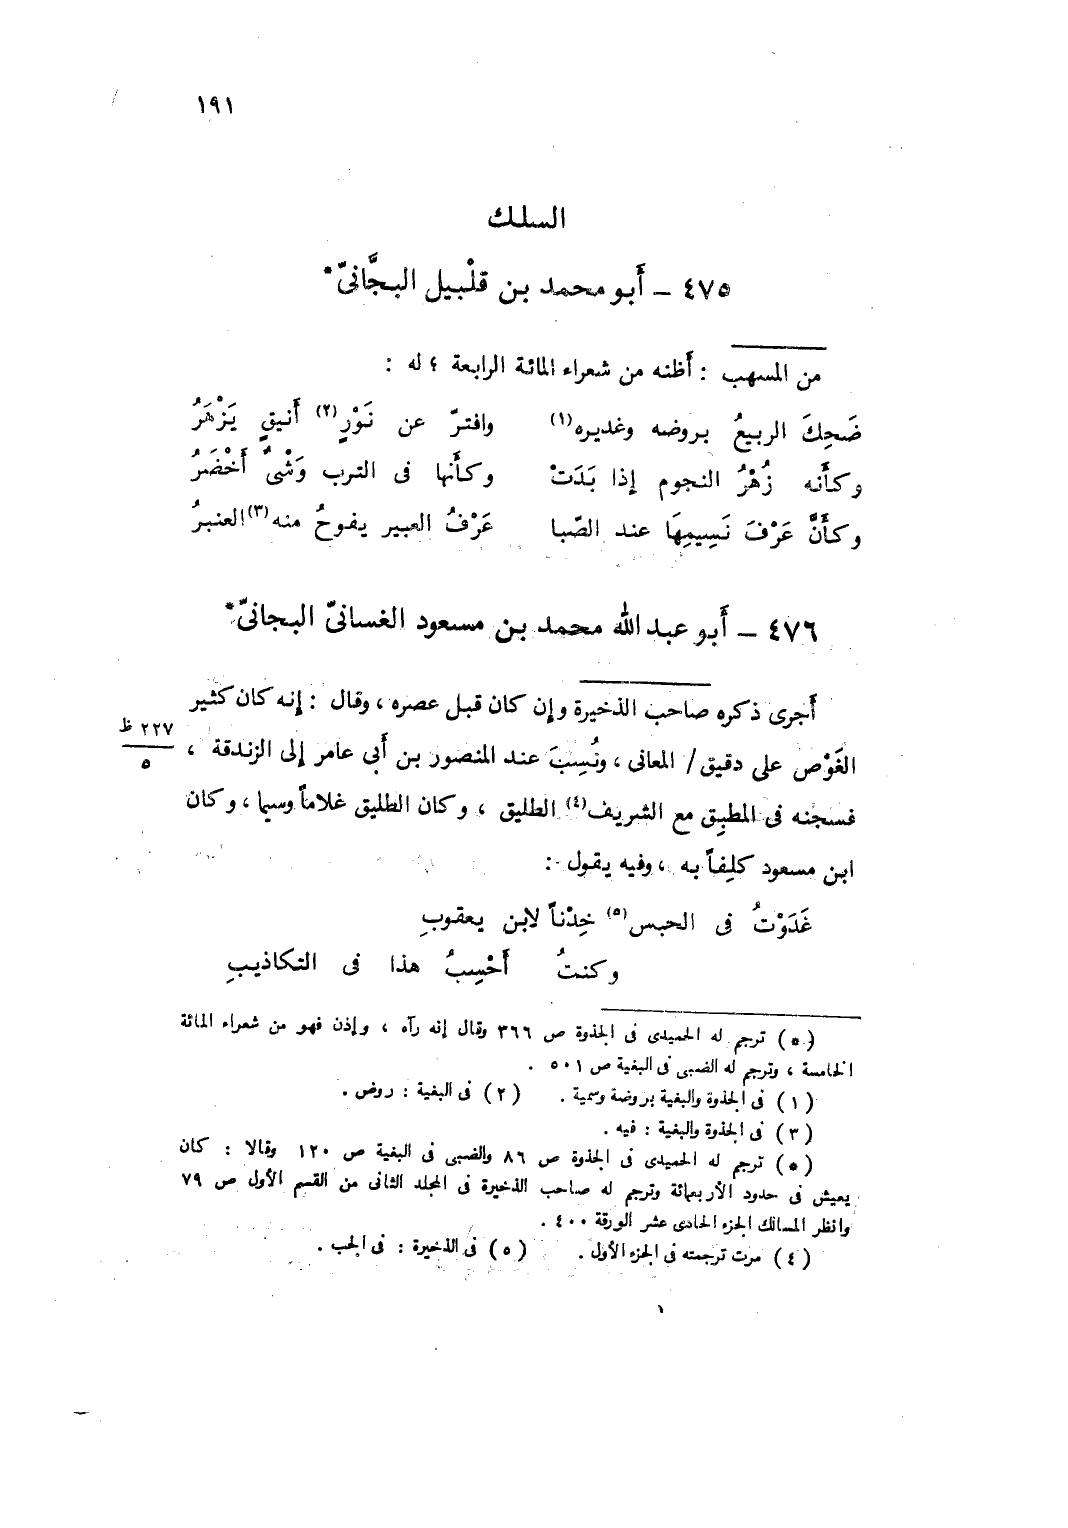 ١٩١
السلك
٤٧٥ – أَبو محمد بن قلْبيل البجَّانىّ*
من المسهب : أَظنه من شعراء المائة الرابعة ؛ له :
ضَحِكَ الربيعُ بروضه وغديره(١) وافترّ عن نَوْرٍ(٢) أَنيقٍ يَزْهَرُ
وكأَنه زُهْرُ النجوم إذا بَدَتْ وكأَنها فى الترب وَشْىٌ أَخْضَرُ
وكأَنَّ عَرْفَ نَسِيمِهَا عند الصّبا عَرْفُ العبير يفوحُ منه(٣) العنبرُ
٤٧٦ – أَبو عبد الله محمد بن مسعود الغسانىّ البجانىّ*
أَجرى ذكره صاحب الذخيرة وإن كان قبل عصره ، وقال : إنه كان كثير
الغَوْص على دقيق / المعانى ، ونُسِبَ عند المنصور بن أَبي عامر إلى الزندقة ،
٢٢٧ ظ
٥
فسجنه فى المطبِق مع الشريف(٤) الطليق ، وكان الطليق غلاماً وسيما ، وكان
ابن مسعود كلِفاً به ، وفيه يقول :
غَدَوْتُ فى الحبس(٥) خِدْناً لابن يعقوبِ
وكنتُ أَحْسِبُ هذا فى التكاذيبِ
(*) ترجم له الحميدى فى الجذوة ص ٣٦٦ وقال إنه رآه ، وإذن فهو من شعراء المائة
الخامسة ، وترجم له الضبى فى البغية ص ٥٠١ .
(١) فى الجذوة والبغية بروضة وسمية . (٢) فى البغية : روض .
(٣) فى الجذوة والبغية : فيه .
(*) ترجم له الحميدى فى الجذوة ص ٨٦ والضبى فى البغية ص ١٢٠ وقالا : كان
يعيش فى حدود الأربعمائة وترجم له صاحب الذخيرة فى المجلد الثانى من القسم الأول ص ٧٩
وانظر المسالك الجزء الحادى عشر الورقة ٤٠٠ .
(٤) مرت ترجمته فى الجزء الأول . (٥) فى الذخيرة : فى الجب .
١